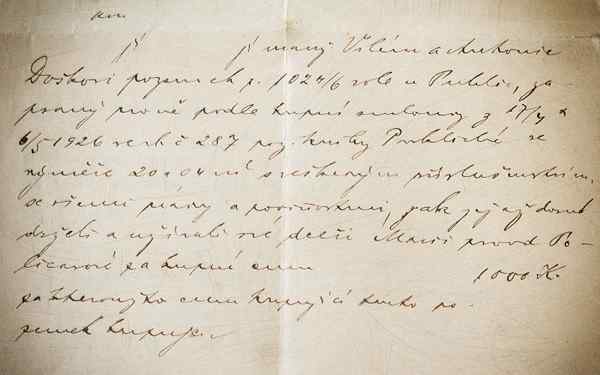 jí jí manž. Vilém a Antonie
Doškovi pozemek p. 1024/6 role u Puklic, za-
psaný prvně podle kupní smlouvy z 17/4 *
6/5 1926 ve vl. č 287 poz. knihy Puklické ve
výměře 2004 m² s veškerým příslušenstvím,
se všemi právy a povinnostmi, jak jej až dosud
drželi a užívali své dceři Marii provd. Po-
licarové za kupní cenu 1000 K.
za kteroužto cenu kupující tento po-
zemek kupuje.